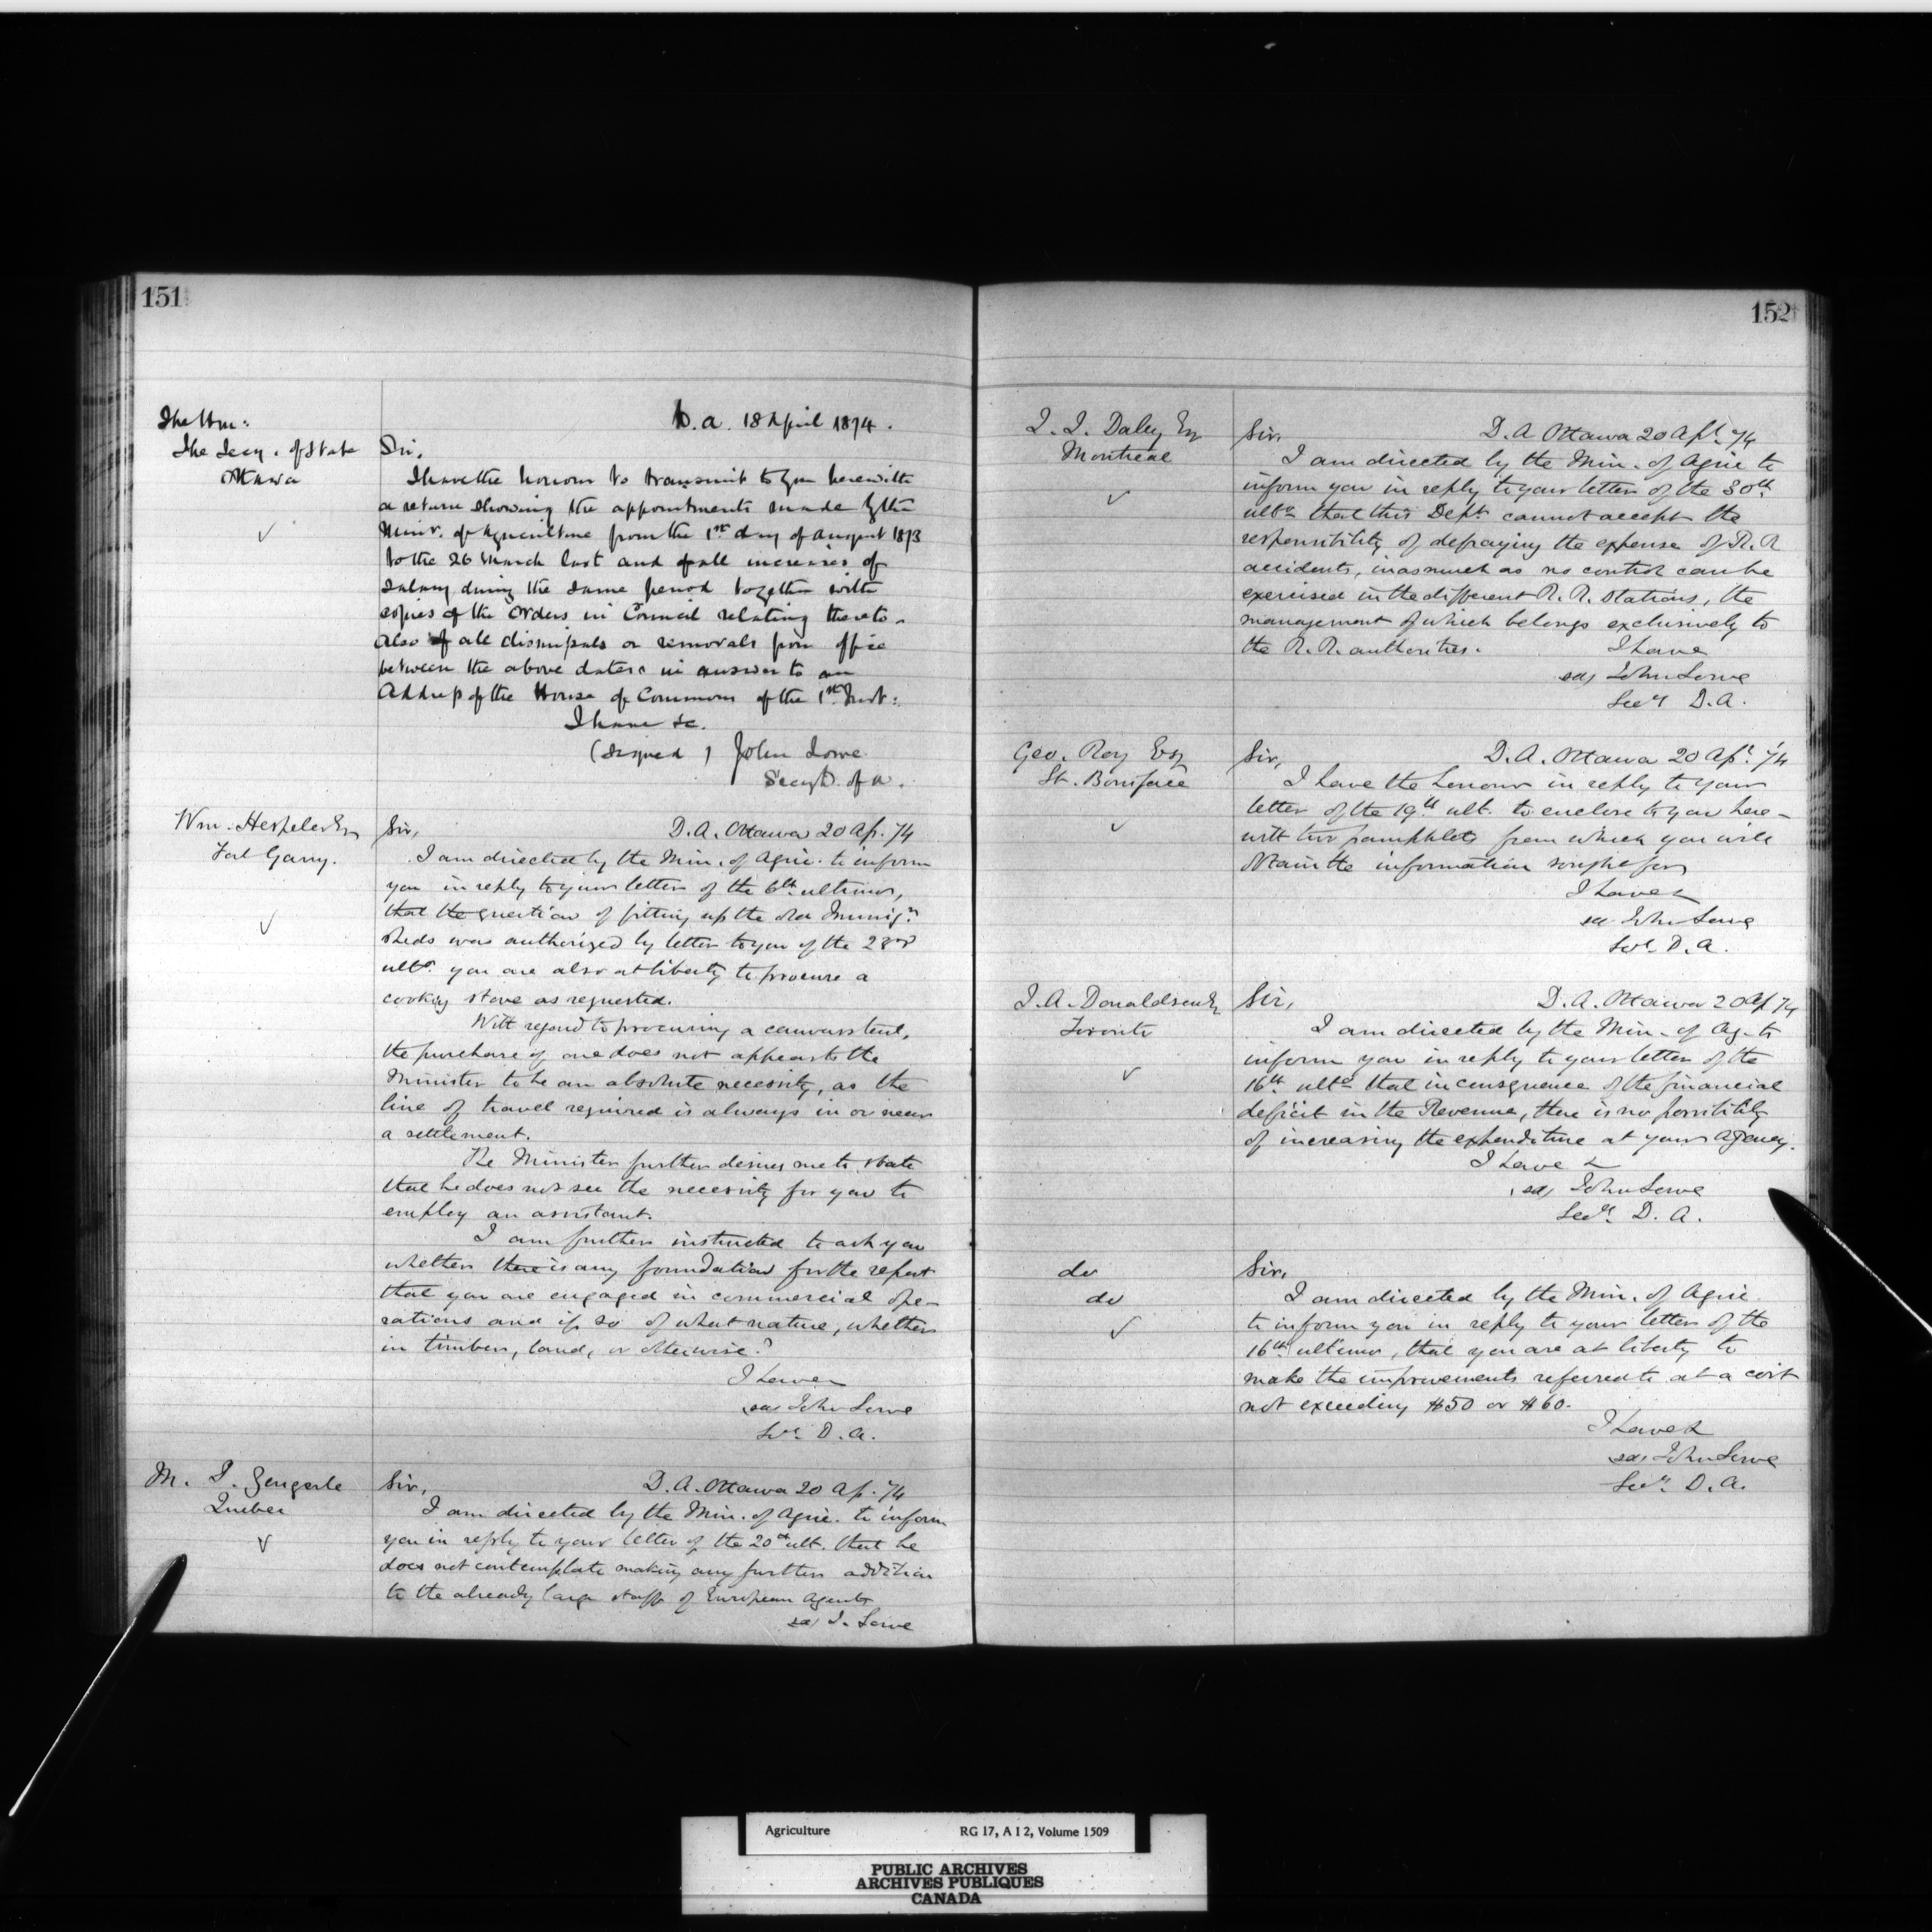 151
The Hon:
The Secy. of State
Ottawa
D. A. 18 April 1874.
Sir,
I have the honour to transmit to you herewith
a return showing the appointments made by the
Minr. of Agriculture from the 1st day of August 1873
to the 26 March last and of all increases of
salary during the same period together with
copies of the Orders in Council relating thereto.
Also of all dismissals or removals from office
between the above dates in answer to an
Address of the House of Commons of the 1st Inst:
I have &c.
(Signed) John Lowe
Secy D. of A.
Wm. Hespeler Esq
Fort Garry.
Sir, D. A. Ottawa 20 Ap. 74
I am directed by the Min. of Agric. to inform
you in reply to your letter of the 6th ultimo,
that the question of fitting up the old Immign
sheds was authorized by letter to you of the 23rd
ulto. you are also at liberty to procure a
cooking stove as requested.
With regard to procuring a canvass tent,
the purchase of one does not appear to the
Minister to be an absolute necessity, as the
line of travel required is always in or near
a settlement.
The Minister further desires me to state
that he does not see the necessity for you to
employ an assistant.
I am further instructed to ask you
whether there is any foundation for the report
that you are engaged in commercial ope-
rations and if so of what nature, whether
in timber, land, or otherwise?
I have
sd/ John Lowe
Secy D. A.
M. I. Gengerle
Quebec
Sir, D. A. Ottawa 20 Ap. 74
I am directed by the Min. of Agric. to inform
you in reply to your letter of the 20th ult. that he
does not contemplate making any further addition
to the already large staff of European Agents
sd/ J. Lowe
152
J. J. Daley Esq
Montreal
Sir, D. A Ottawa 20 Apl. 74
I am directed by the Min. of Agric to
inform you in reply to your letter of the 30th
ulto that this Dept. cannot accept the
responsibility of defraying the expense of R. R
accidents, inasmuch as no control can be
exercised in the different R. R. Stations, the
management of which belongs exclusively to
the R. R. authorities. I have
sd/ John Lowe
Secy D. A.
Geo. Roy Esq
St. Boniface
Sir, D. A. Ottawa 20 Apl. 74
I have the honour in reply to your
letter of the 19th ult. to enclose to you here-
with two pamphlets from which you will
obtain the information sought for
I have &
sd John Lowe
Secy D. A.
J. A. Donaldson Esq
Toronto
Sir, D. A. Ottawa 20 Ap 74
I am directed by the Min. of Ag. to
inform you in reply to your letter of the
16th ulto that in consequence of the financial
deficit in the Revenue, there is no possibility
of increasing the expenditure at your Agency.
I have &
sd/ John Lowe
Secy. D. A.
do
do
Sir,
I am directed by the Min. of Agric.
to inform you in reply to your letter of the
16th ultimo, that you are at liberty to
make the improvements referred to at a cost
not exceeding $50 or $60.
I have &
sd/ John Lowe
Secy D. A.
Agriculture RG 17, A I 2, Volume 1509
PUBLIC ARCHIVES
ARCHIVES PUBLIQUES
CANADA